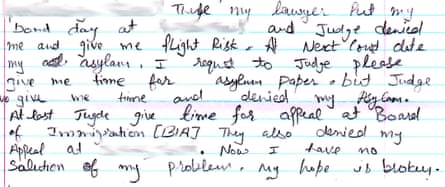 These my lawyer Put my
bond day at and Judge denied
me and give me flight Risk. At Next Court date
my asylum. I request to Judge please
Give me time for asylum Paper. but Judge
no give me time and denied my
At last Jugde give time for appeal at Board
of Immigration [BIA] They also denied my
Appeal at . Now I have no
Solution of my problem. my hope is broken.